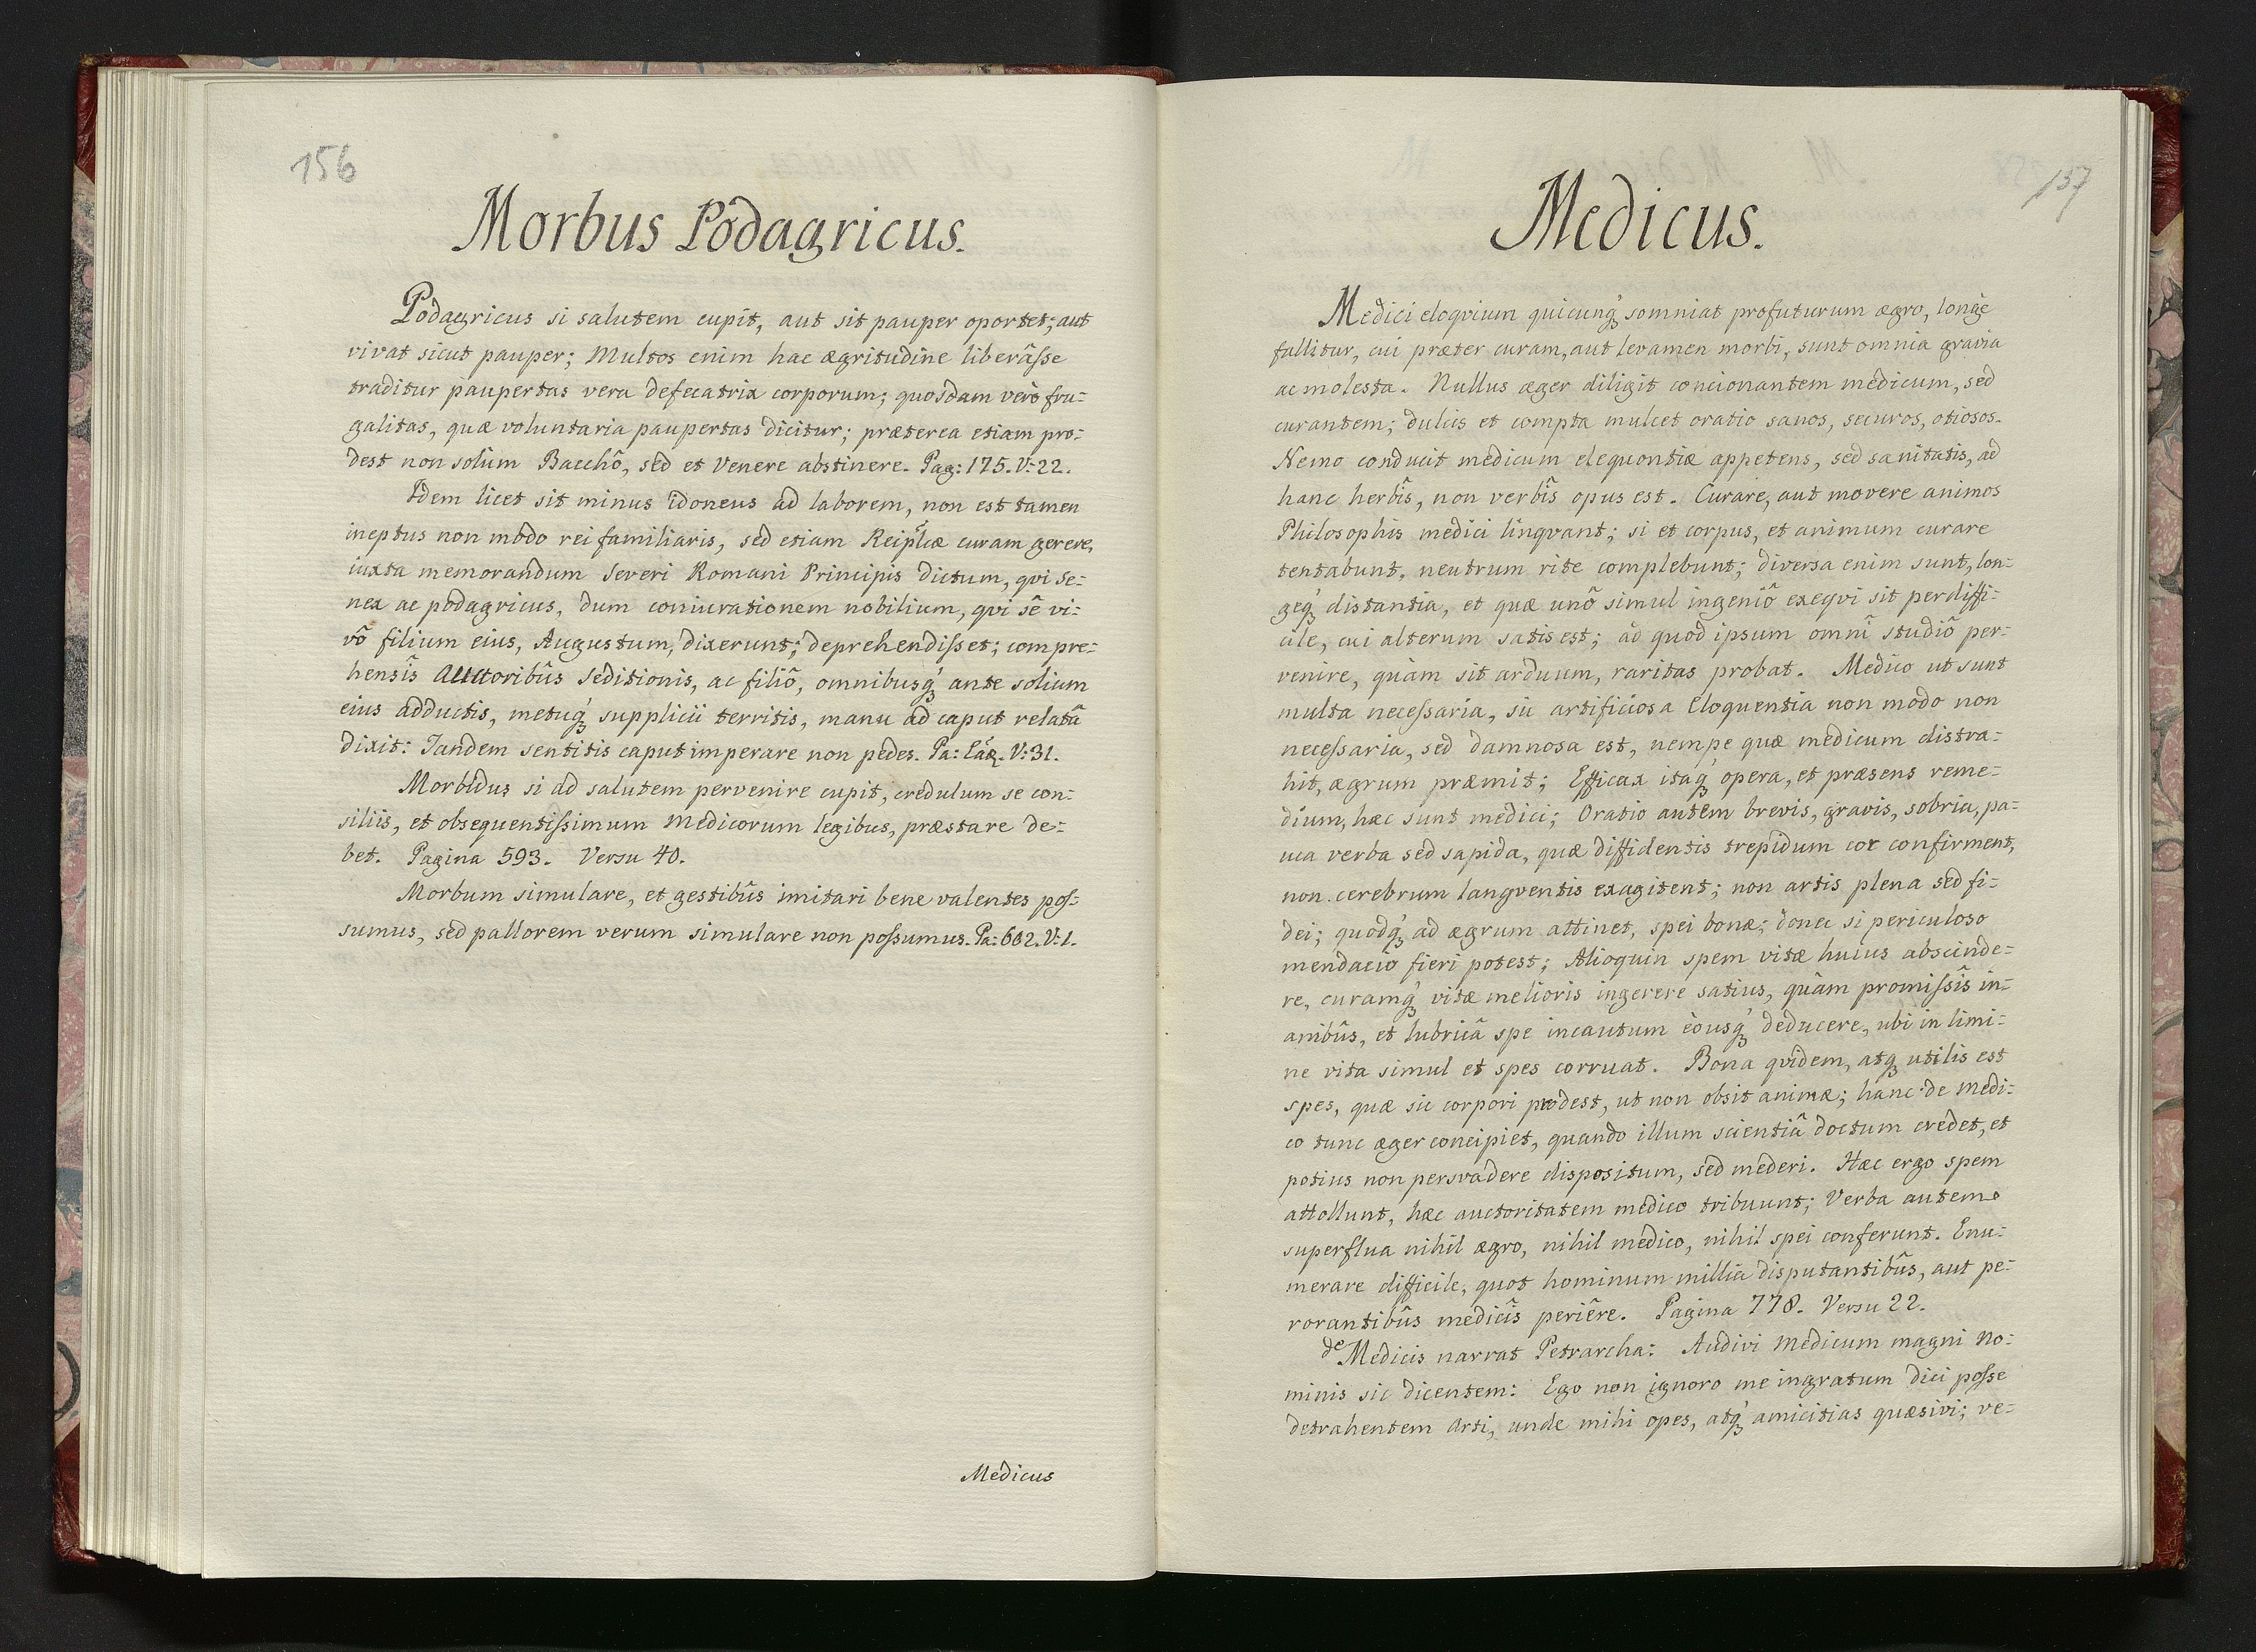 156
Morbus Podagricus.
Podagricus si salutem cupit, aut sit pauper oportet; aut
vivat sicut pauper; Multos enim hac ægritudine liberâsse
traditur paupertas vera defecatrix corporum; quosdam verò fru=
galitas, quæ voluntaria paupertas dicitur; præterea etiam pro=
dest non solùm Bacchô, sed et Venere abstinere. Pag: 175. V: 22.
Idem licet sit minus idoneus ad laborem, non est tamen
ineptus non modo rei familiaris, sed etiam Reiplcæ curam gerere,
iuxta memorandum Severi Romani Principis dictum, qvi se=
nex ac podagricus, dum coniurationem nobilium, qvi sê vi=
vô filium eius, Augustum, dixerunt; deprehendisset; compre=
hensîs Auctoribûs seditionis, ac filiô, omnibusq́ꝫ ante solium
eius adductis, metuq́ꝫ supplicii territis, manu ad caput relatâ
dixit: Tandem sentitis caput imperare non pedes. Pa: Eâd. V: 31.
Morbidus si ad salutem pervenire cupit, credulum se con=
siliis, et obsequentissimum Medicorum legibus, præstare de=
bet. Pagina 593. Versu 40.
Morbum simulare, et gestibûs imitari bene valentes pos=
sumus, sed pallorem verum simulare non possumus. Pa: 602. V: 1.
Medicus
157
Medicus.
Medici eloqvium quicunq́ꝫ somniat profuturum ægro, longè
fallitur, cui præter curam, aut levamen morbi, sunt omnia gravia
ac molesta. Nullus æger diligit concionantem medicum, sed
curantem; dulcis et compta mulcet oratio sanos, securos, otiosos.
Nemo conducit medicum elequontiæ appetens, sed sanitatis, ad
hanc herbîs, non verbîs opus est. Curare, aut movere animos
Philosophis medici linqvant; si et corpus, et animum curare
tentabunt, neutrum rite complebunt; diversa enim sunt, lon=
geq́ꝫ distantia, et quæ unô simul ingeniô exeqvi sit perdiffi=
cile, cui alterum satis est; ad quod ipsum omnî studiô per=
venire, quàm sit arduum, raritas probat. Medico ut sunt
multa necessaria, sic artificiosa Eloquentia non modo non
necessaria, sed damnosa est, nempe quæ medicum distra=
hit, ægrum præmit; Efficax itaq́ꝫ opera, et præsens reme=
dium, hæc sunt medici; Oratio autem brevis, gravis, sobria, pa=
uca verba sed sapida, quæ diffidentis trepidum cor confirment,
non cerebrum langventis exagitent; non artis plena sed fi=
dei; quodq́ꝫ ad ægrum attinet, spei bonæ; donec si periculoso
mendacio fieri potest; Alioquin spem vitæ huius abscinde=
re, curamq́ꝫ vitæ melioris ingerere satius, quàm promissîs in=
anibûs, et lubricâ spe incautum èousq́ꝫ deducere, ubi in limi=
ne vita simul et spes corruat. Bona qvidem, atqꝫ utilis est
spes, quæ sic corpori prodest, ut non obsit animæ; hanc de Medi=
co tunc æger concipiet, quando illum scientiâ doctum credet, et
potius non persvadere dispositum, sed mederi. Hæc ergo spem
attollunt, hæc auctoritatem medico tribuunt; Verba autem
superflua nihil ægro, nihil medico, nihil spei conferunt. Enu=
merare difficile, quot hominum millia disputantibûs, aut pe=
rorantibûs medicîs periêre. Pagina 778. Versu 22.
de Medicis narrat Petrarcha: Audivi Medicum magni no=
minis sic dicentem: Ego non ignoro me ingratum dici posse
detrahentem Arti, unde mihi opes, atq́ꝫ amicitias quæsivi; ve=